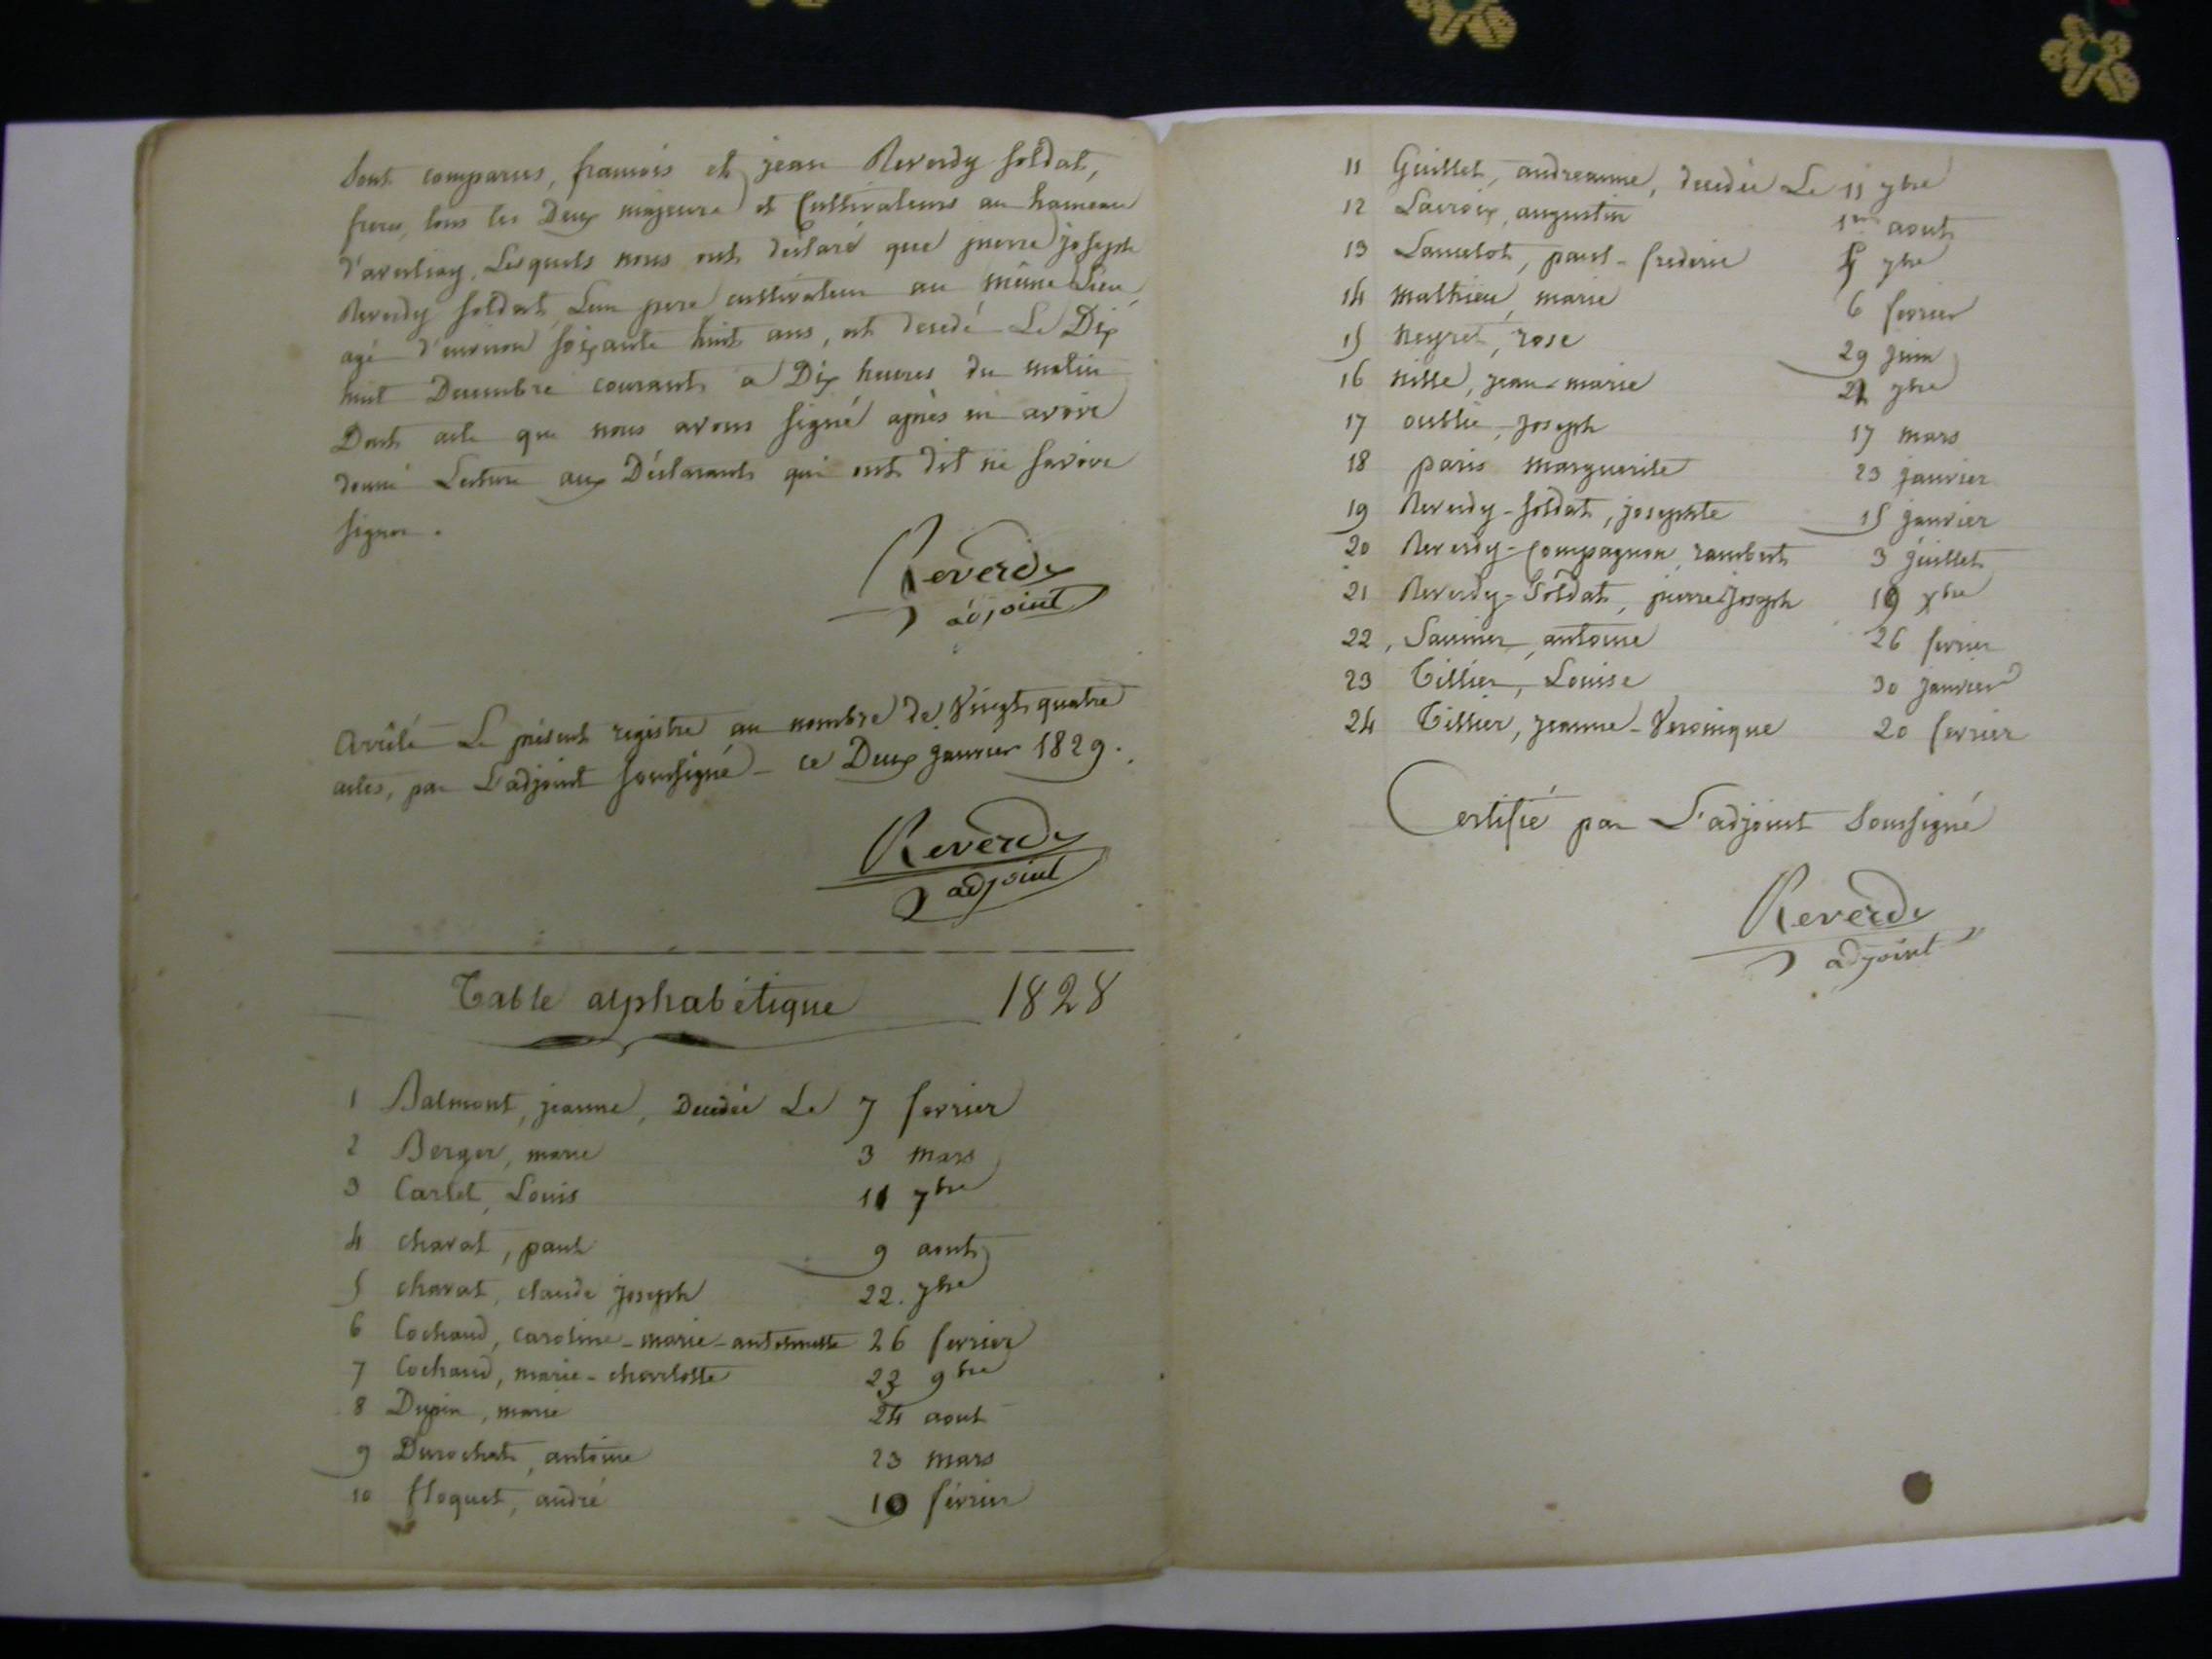 Sont comparus, francois et jean Reverdy soldat,
freres, tous les Deux majeurs et Cultivateurs au hameau
Lesquels nous ont déclaré que pierre joseph
Reverdy soldat, Leur pere cultivateur au même Lieu
agé d'environ soixante huit ans, est decedé Le Dix
huit Decembre courant a Dix heures du matin
Dont acte que nous avons signé après en avoir
donné Lecture aux Déclarants qui ont dit ne savoir
signer.
Reverdy
adjoint
Arrêté Le présent registre au nombre de Vingt quatre
actes, par L'adjoint soussigné - ce Deux janvier 1829.
Reverdy
adjoint
Table alphabétique 1828
1 Balmont, jeanne, Decedée Le 7 fevrier
2 Berger, marie 3 mars
3 Carlet, Louis 11 7bre
4 charat, paul 9 aout
5 charat, claude joseph 22. 7bre
6 Cochaud, caroline-marie-antoinette 26 fevrier
7 Cochaud, marie-charlotte 23 9bre
8 Dupin, marie 24 aout
9 Durochat, antoine 23 mars
10 floquet, andré 10 février
11 Guillet, andreanne, decedée Le 11 7bre
12 Lacroix, augustin 1er aout
13 Lancelot, paul-frederic 7bre
14 mathieu, marie 6 fevrier
15 neyret, rose 29 juin
16 nille, jean-marie 21 7bre
17 oullié, joseph 17 mars
18 paris marguerite 23 janvier
19 Reverdy-soldat, josephte 15 janvier
20 Reverdy-Compagnon, rambert 3 juillet
21 Reverdy-Soldat, pierre joseph 19 xbre
22, antoine 26 fevrier
23 Tillier, Louise 30 janvier
24 Tillier, jeanne-Veronique 20 fevrier
Certifié par L'adjoint Soussigné
Reverdy
adjoint